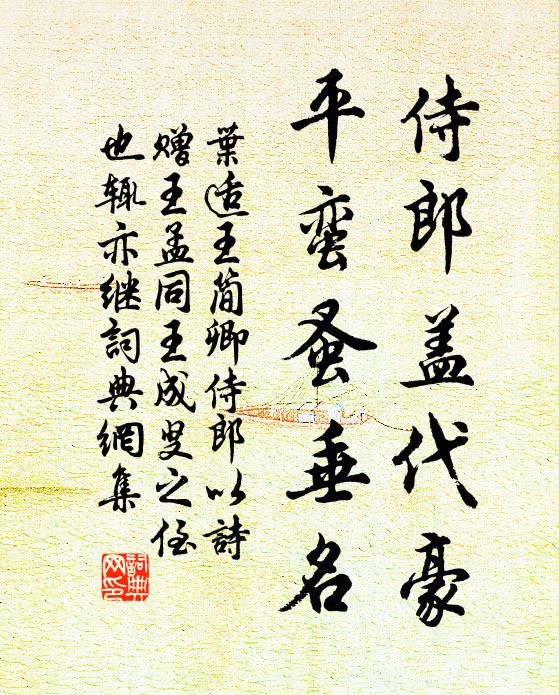 侍郎盖代豪
平蛮蚤垂名
葉适王简卿侍郎以詩
赠王孟同王成叟之侄
也辄亦继詞典網集
詞典
网印